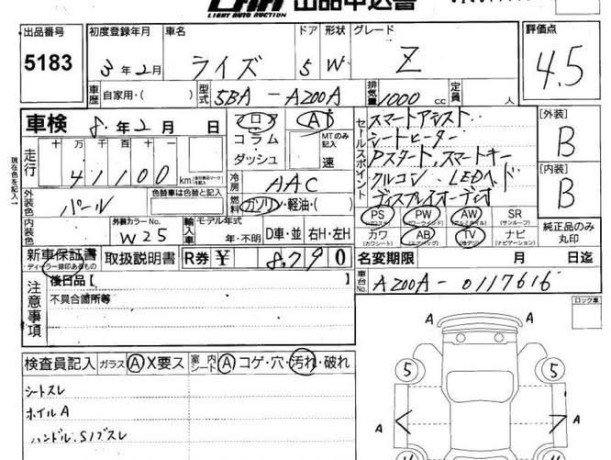 LIGHT AUTO AUCTION 出品申込書
出品番号 初度登録年月 車名 ドア 形状 グレード 評価点
5183 3年2月 ライズ 5 W Z 4.5
車歴 自家用・( ) 型式 5BA-A200A 排気量 1000 cc 定員 人
車検 8年2月 日 フロア AT
コラム MTのみ記入
ダッシュ 速
セールスポイント
スマートアシスト
シートヒーター
Pスタート、スマートキー
クルコン LEDヘッド
ディスプレイオーディオ
[外装]
B
[内装]
B
現在色を記入
走行 十万千百十
41100 km
冷房 AAC
燃料 ガソリン・軽油・( )
外装色 パール 色替車は色替と記入
内装色 外装カラーNo. W25
輸入車 モデル年式 年・不明 D車・並 右H・左H
PS PW AW SR
(サンルーフ)
カワ AB TV ナビ
(カワシート) (エアバッグ) (ナビゲーション)
純正品のみ丸印
新車保証書 取扱説明書 R券 ¥ 8790
名変期限 月 日迄
車台No. A200A-0117616
注意事項
後日品[ ]
不具合箇所等
ロック車
検査員記入 ガラス A X要ス 室内シート A コゲ・穴・汚れ・破れ
シートスレ
ホイルA
ハンドル、S/ブスレ
A A
5 5
A A